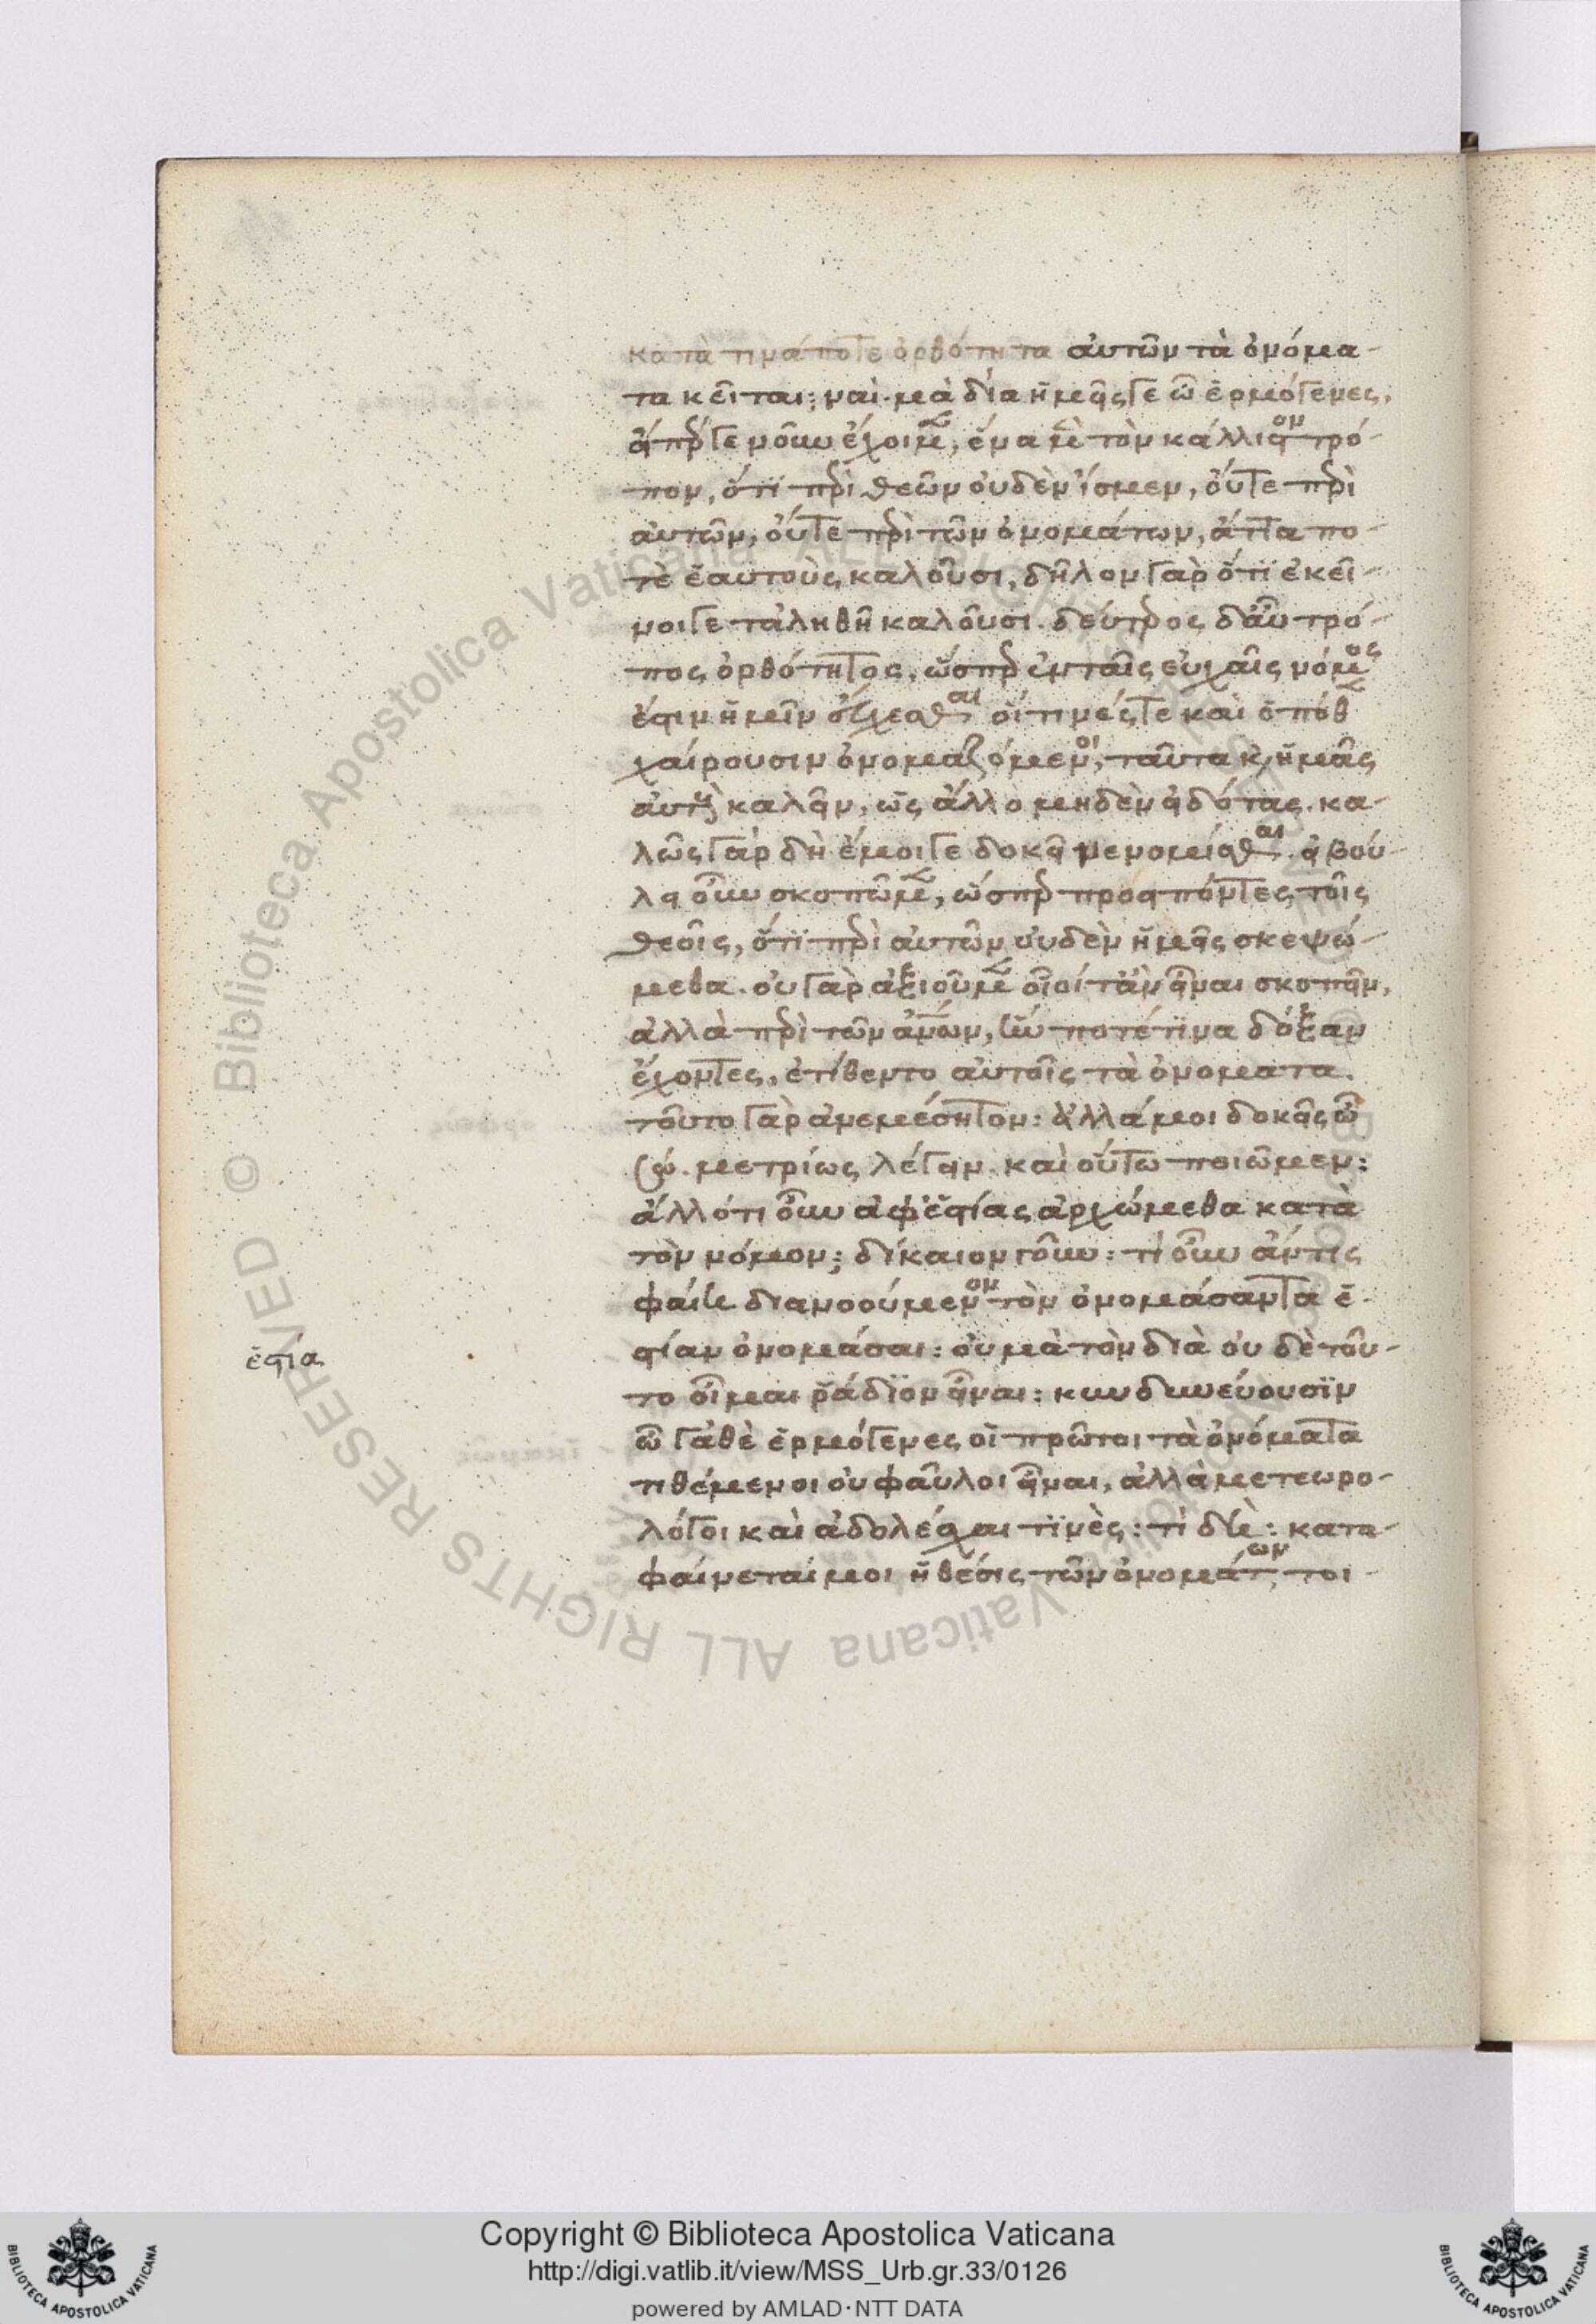 κατὰ τινά ποτε ὀρθότητα αὐτῶν τὰ ὀνόμα-
τα κεῖται; ναὶ μὰ δία ἡμεῖς γε ὦ ἑρμόγενες,
εἴπερ γε νοῦν ἔχοιμεν, ἕνα μὲν τὸν κάλλιστον τρό-
πον, ὅτι περὶ θεῶν οὐδὲν ἴσμεν, οὔτε περὶ
αὐτῶν, οὔτε περὶ τῶν ὀνομάτων, ἅττα πο-
τὲ ἑαυτοὺς καλοῦσι, δῆλον γὰρ ὅτι ἐκεῖ-
νοί γε τἀληθῆ καλοῦσι. δεύτερος δ' αὖ τρό-
πος ὀρθότητος, ὥσπερ ἐν ταῖς εὐχαῖς νόμος
ἐστιν ἡμῖν εὔχεσθαι οἵτινές τε καὶ ὁπόθεν
χαίρουσιν ὀνομαζόμενοι, ταῦτα καὶ ἡμᾶς
αὐτοὺς καλεῖν, ὡς ἄλλο μηδὲν εἰδότας. κα-
λῶς γὰρ δὴ ἔμοιγε δοκεῖ νενομίσθαι. εἰ βού-
λει οὖν σκοπῶμεν, ὥσπερ προειπόντες τοῖς
θεοῖς, ὅτι περὶ αὐτῶν οὐδὲν ἡμεῖς σκεψώ-
μεθα. οὐ γὰρ ἀξιοῦμεν οἷοί τ' ἂν εἶναι σκοπεῖν,
ἀλλὰ περὶ τῶν ἀνων, ἥν ποτέ τινα δόξαν
ἔχοντες, ἐτίθεντο αὐτοῖς τὰ ὀνόματα.
τοῦτο γὰρ ἀνεμέσητον: ἀλλά μοι δοκεῖς ὦ
σώ. μετρίως λέγειν. καὶ οὕτω ποιῶμεν:
ἄλλό τι οὖν ἀφ' ἑστίας ἀρχώμεθα κατὰ
τὸν νόμον; δίκαιον γοῦν: τί οὖν ἄν τις
φαίη διανοούμενον τὸν ὀνομάσαντα ἑ-
στίαν ὀνομάσαι: οὐ μὰ τὸν δία οὐδὲ τοῦ-
το οἶμαι ῥάδιον εἶναι: κινδυνεύουσιν
ὦ γαθὲ ἑρμόγενες οἱ πρῶτοι τὰ ὀνόματα
τιθέμενοι οὐ φαῦλοι εἶναι, ἀλλὰ μετεωρο-
λόγοι καὶ ἀδολέσχαι τινὲς: τί δὴ: κατα-
φαίνεταί μοι ἡ θέσις τῶν ὀνομάτων τοι-
ἑστία
Copyright © Biblioteca Apostolica Vaticana
http://digi.vatlib.it/view/MSS_Urb.gr.33/0126
powered by AMLAD·NTT DATA